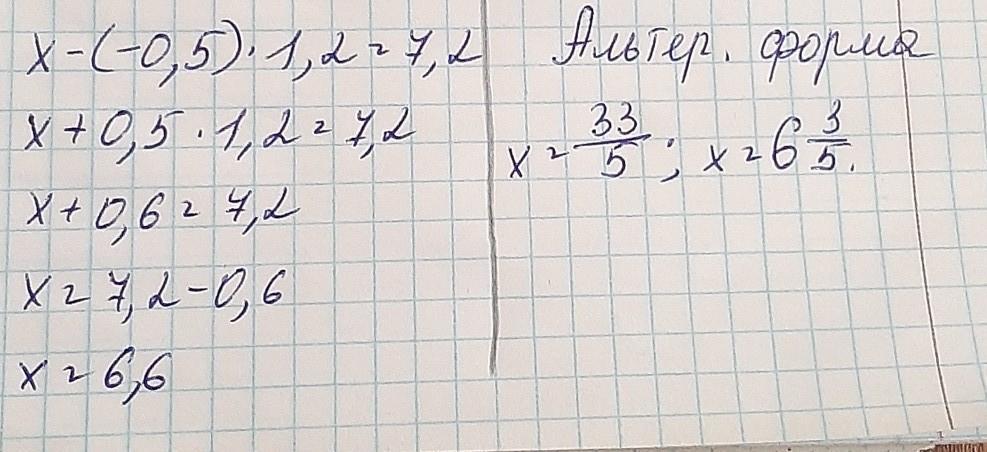 x-(-0,5)·1,2=7,2
x+0,5·1,2=7,2
x+0,6=7,2
x=7,2-0,6
x=6,6
Альтер. форма
x=33/5; x=6 3/5.